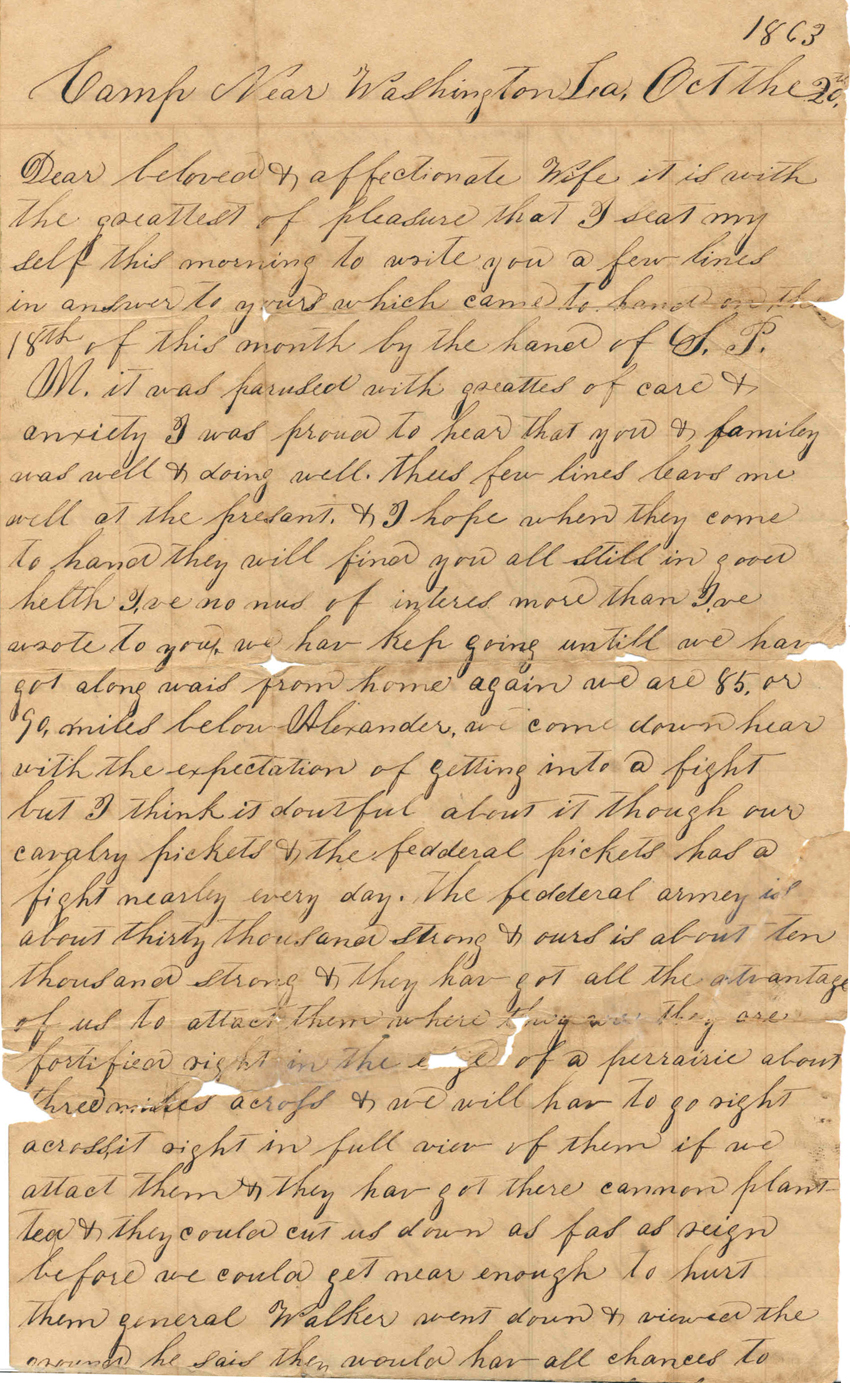 1863
Camp Near Washington Lea, Oct the 20th,
Dear beloved & affectionate Wife it is with
the greattest of pleasure that I seat my
self this morning to write you a few lines
in answer to yours which came to hand on the
18th of this month by the hand of S. P.
M. it was parused with greattes of care &
anxiety I was proud to hear that you & familey
was well & doing well. thees few lines leavs me
well at the presant. & I hope when they come
to hand they will find you all still in good
helth I,ve no nus of interes more than I,ve
wrote to you, we hav kep going untill we hav
got along wais from home again we are 85, or
90, miles below Alexander, we come down hear
with the expectation of getting into a fight
but I think it doutful about it though our
cavalry pickets & the fedderal pickets has a
fight nearley every day. the fedderal armey is
about thirty thousand strong & ours is about ten
thousand strong & they hav got all the atvantage
of us to attact them where they are
fortified right in the edge of a perrairie about
three miles across & we will hav to go right
across it right in full view of them if we
attact them & they hav got there cannon plant
ted & they could cut us down as fas as reign
before we could get near enough to hurt
them general Walker went down & viewed the
ground he sais they would hav all chances to